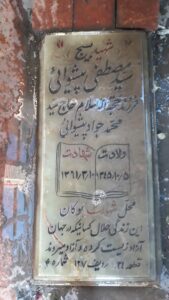 شهید بسیج
سید مصطفی پیشوائی
فرزند حجة الاسلام حاج سید
محمد جواد پیشوائی
ولادت شهادت
۱۳۶۱/۳/۱۰
محل شهادت
این زندگی حلال کسانیکه در جهان
آزاد زیست کرده و آزاد میروند
قطعه ۲۶ ردیف شماره ۴